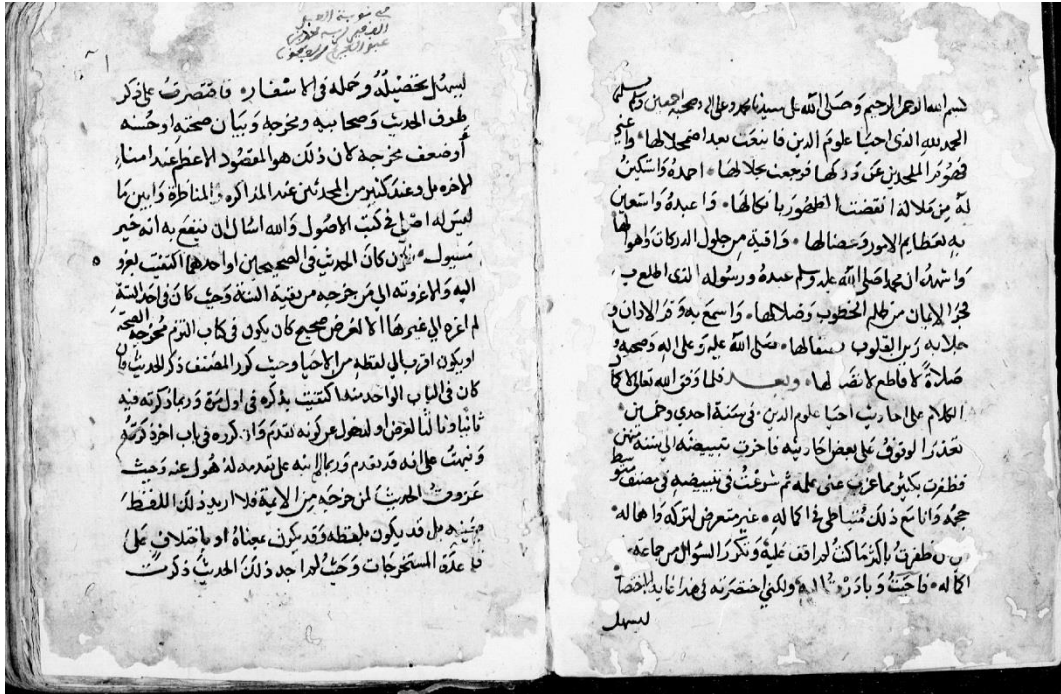 بسم الله الرحمن الرحيم وصلى الله على سيدنا محمد وعلى اله وصحبه اجمعين وسلم
الحمد لله الذي احيا علوم الدين فاينعت بعد اضمحلالها واعيى
فهوم الملحدين عن دركها فرجعت بكلالها احمده واستكين
له من مظالم انقضت الظهور باثقالها واعبده واستعين
به لعظايم الامور وعضالها واقيه من حلول الدركات واهوالها
واشهد ان محمدا صلى الله عليه وسلم عبده ورسوله الذي اطلع به
فجر الايمان من ظلم الخطوب وضلالها واسمع به وقر الاذان و
جلا به رين القلوب بصقالها صلى الله عليه وعلى اله وصحبه و
صلاة لا قاطع لاتصالها وبعد فلما وفق الله تعالى لاكمال
الكلام على احاديث احيا علوم الدين في سنة احدى وخمسين
تعذر الوقوف على بعض احاديثه فاخرت تبييضه الى سنة ستين
فظفرت بكثير مما عزب عني علمه ثم شرعت في تبييضه في مصنف متوسط
حجمه وانا مع ذلك متباطي في اكماله غير متعرض لتركه واهماله
ظفرت باكثر ما كنت لم اقف عليه وتكرر السؤال من جماعة
اكماله فاجبت وبادرت اليه ولكني اختصرته في هذا غاية الاختصار
ليسهل
ليسهل تحصيله وحمله في الاسفار فاقتصرت على ذكر
طرف الحديث وصحابيه ومخرجه وبيان صحته او حسنه
او ضعف مخرجه كان ذلك هو المقصود الاعظم عند ابناء
الاخره بل وعند كثير من المحدثين عند المذاكره والمناظرة وابين ما
ليس له اصل في كتب الاصول والله اسال ان ينفع به انه خير
مسيول فان كان الحديث في الصحيحين او احدهما اكتفيت بعزوه
اليه والا عزوته الى من خرجه من بقية الستة وحيث كان في احد الستة
لم اعزه الى غيرها الا لغرض صحيح كان يكون في كتاب التزم مخرجه الصحة
او يكون اقرب الى لفظه من الاحيا وحيث كرر المصنف ذكر الحديث فان
كان في الباب الواحد منه اكتفيت بذكره في اول مرة وربما ذكرته فيه
ثانيا وثالثا لغرض او لذهول عن كونه تقدم وان كرره في باب اخر ذكرته
ونبهت على انه قد تقدم وربما لم انبه على تقدمه لذهول عنه وحيث
عزوت الحديث لمن خرجه من الايمة فلا اريد ذلك اللفظ
بعينه بل قد يكون بلفظه وقد يكون بمعناه او باختلاف على
قاعدة المستخرجات وحيث لم اجد ذلك الحديث ذكرت